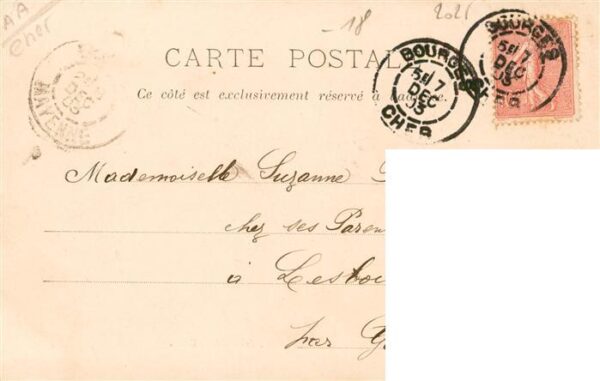 AA
Cher
18
CARTE POSTALE
Ce côté est exclusivement réservé à l'adresse.
BOURGES
7
DEC
03
CHER
BOURGES
7
DEC
03
CHER
MAYENNE
DEC
Mademoiselle Suzanne
chez ses Paren
à Lesboi
par G